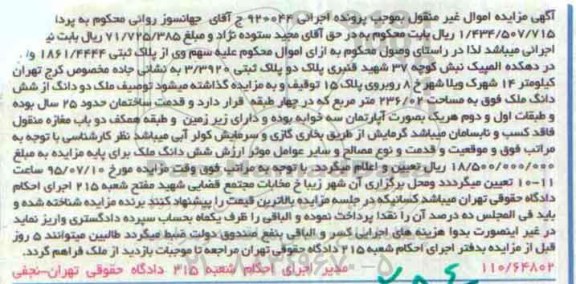 آگهی مزایده اموال غیر منقول بموجب پرونده اجرائی ۹۲۰۰۴۴ ج آقای جهانسوز روانی محکوم به پردا
۱/۴۳۴/۵۰۷/۷۱۵ ریال بابت محکوم به در حق آقای مجید ستوده نژاد و مبلغ ۷۱/۷۲۵/۳۸۵ ریال بابت نی
اجرائی میباشد لذا در راستای وصول محکوم به ازای اموال محکوم علیه سهم وی از پلاک ثبتی ۱۸۶۱/۴۴۴۴ وا
در دهکده المپیک نبش کوچه ۳۷ شهید قنبری پلاک دو پلاک ثبتی ۳/۳۹۲۰ به نشانی جاده مخصوص کرج تهران
کیلومتر ۱۴ شهرک ویلا شهر خ ۸ روبروی پلاک ۱۵ توقیف و به مزایده گذاشته میشود توصیف ملک دو دانگ از شش
دانگ ملک فوق به مساحت ۲۳۶/۰۲ متر مربع که در چهار طبقه قرار دارد و قدمت ساختمان حدود ۲۵ سال بوده
و طبقات اول و دوم هریک بصورت آپارتمان سه خوابه بوده و دارای زیر زمین و طبقه همکف دو باب مغازه منقول
فاقد کسب و نابسامان میباشد گرمایش از طریق بخاری گازی و سرمایش کولر آبی میباشد نظر کارشناسی با توجه به
مراتب فوق و موقعیت و قدمت و نوع مصالح و سایر عوامل موثر ارزش شش دانگ ملک برای پایه مزایده به مبلغ
۱۸/۵۰۰/۰۰۰/۰۰۰ ریال تعیین و اعلام میگردد. با توجه به مراتب فوق وقت مزایده مورخ ۹۵/۰۷/۱۰ ساعت
۱۰-۱۱ تعیین میگردد و محل برگزاری آن شهر زیبا خ مخابرات مجتمع قضایی شهید مفتح شعبه ۲۱۵ اجرای احکام
دادگاه حقوقی تهران میباشد کسانیکه در جلسه مزایده بالاترین قیمت را پیشنهاد کنند برنده مزایده شناخته شده و
باید فی المجلس ده درصد آن را نقدا پرداخت نموده و الباقی را ظرف یکماه بحساب سپرده دادگستری واریز نماید
در غیر اینصورت بدوا هزینه های اجرایی کسر و الباقی بنفع صندوق دولت ضبط میگردد طالبین میتوانند ۵ روز
قبل از مزایده بدفتر اجرای احکام شعبه ۲۱۵ دادگاه حقوقی تهران مراجعه تا موجبات بازدید از ملک فراهم گردد.
۱۱۰/۶۴۸۰۲ مدیر اجرای احکام شعبه ۲۱۵ دادگاه حقوقی تهران-نجفی